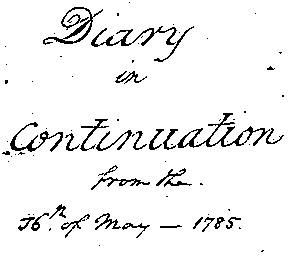 Diary
in
Continuation
from the.
16th of May — 1785.